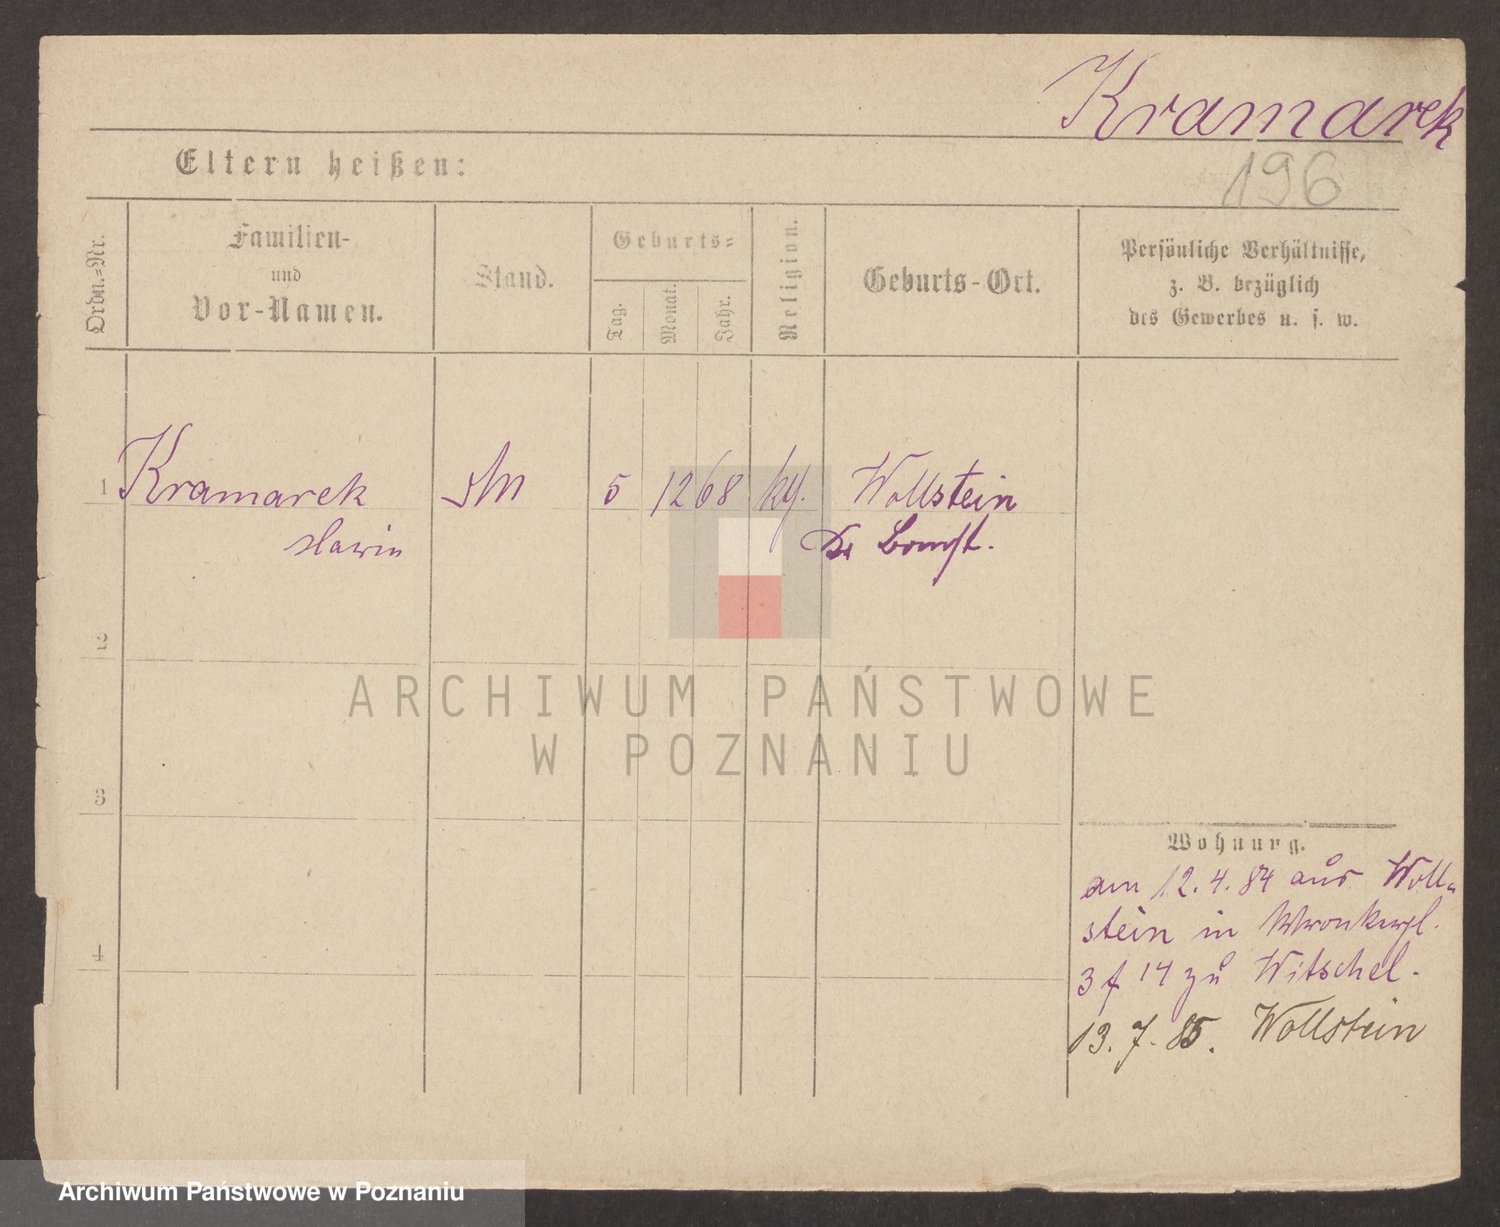 Kramarek
Eltern heißen:
196
Ordn.=Nr.
Familien-
und
Vor-Namen.
Stand.
Geburts=
Tag.
Monat.
Jahr.
Religion.
Geburts-Ort.
Persönliche Verhältnisse,
z. B. bezüglich
des Gewerbes u. s. w.
1 Kramarek 5 12 68 Wollstein
Bomst.
2
ARCHIWUM PAŃSTWOWE
W POZNANIU
3
Wohnung.
am 12. 4. 84 aus Woll=
stein in
4
3 14 zu Witschel.
13. 7. 85. Wollstein
Archiwum Państwowe w Poznaniu